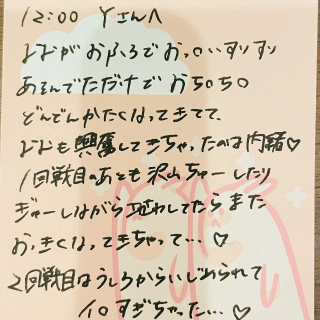 12:00 Yさんへ
おふろでおっ〇いすりすり
あそんでただけでおち〇ち〇
どんどんかたくなってきてて、
も興奮してきちゃったのは内緒♡
1回戦目のあとも沢山ちゅーしたり
ぎゅーしながら してたらまた
おっきくなってきちゃって…♡
2回戦目はうしろからいじめられて
すぎちゃった…♡